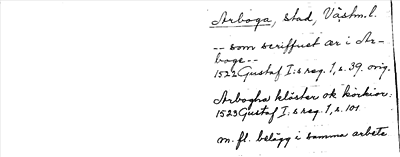 Arboga, stad, Västm.l.
-- som scriffuet ær i Ar-
boge --
1522 Gustaf I:s reg. 1, s. 39. orig.
Arbogha klöster ok kirkior.
1523 Gustaf I:s reg. 1, s. 101
m. fl. belägg i samma arbete